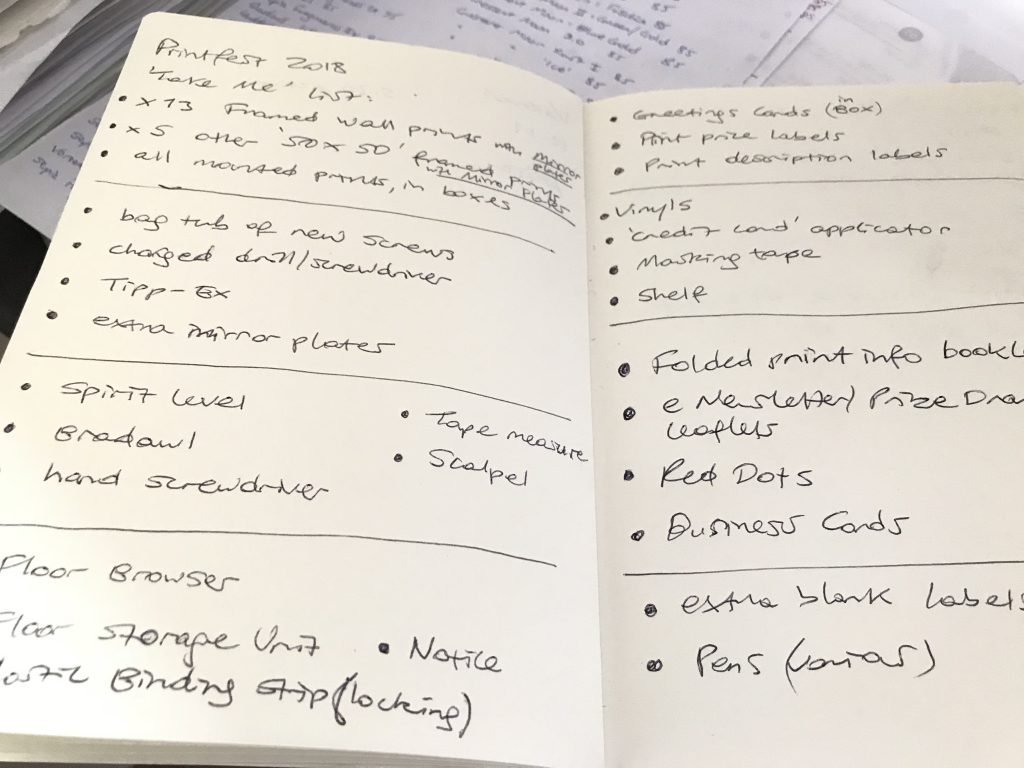 Printfest 2018
'Take Me' List:
• x 13 Framed Wall prints with mirror plates
• x 5 other '50 x 50' framed prints with Mirror Plates
• all mounted prints, in boxes
• bag tub of new screws
• charged drill/screwdriver
• Tipp-Ex
• extra mirror plates
• Spirit Level
• Bradawl
hand screwdriver
• Tape measure
• Scalpel
Floor Browser
Floor Storage Unit
• Notice
Binding Strip (locking)
• Greetings Cards (in Box)
• Print prize labels
• Print description labels
• Vinyls
• 'credit card' applicator
• Masking tape
• Shelf
• Folded print info bookle
• e Newsletter/ Prize Dra
leaflets
• Red Dots
• Business Cards
• extra blank Labels
• Pens (various)